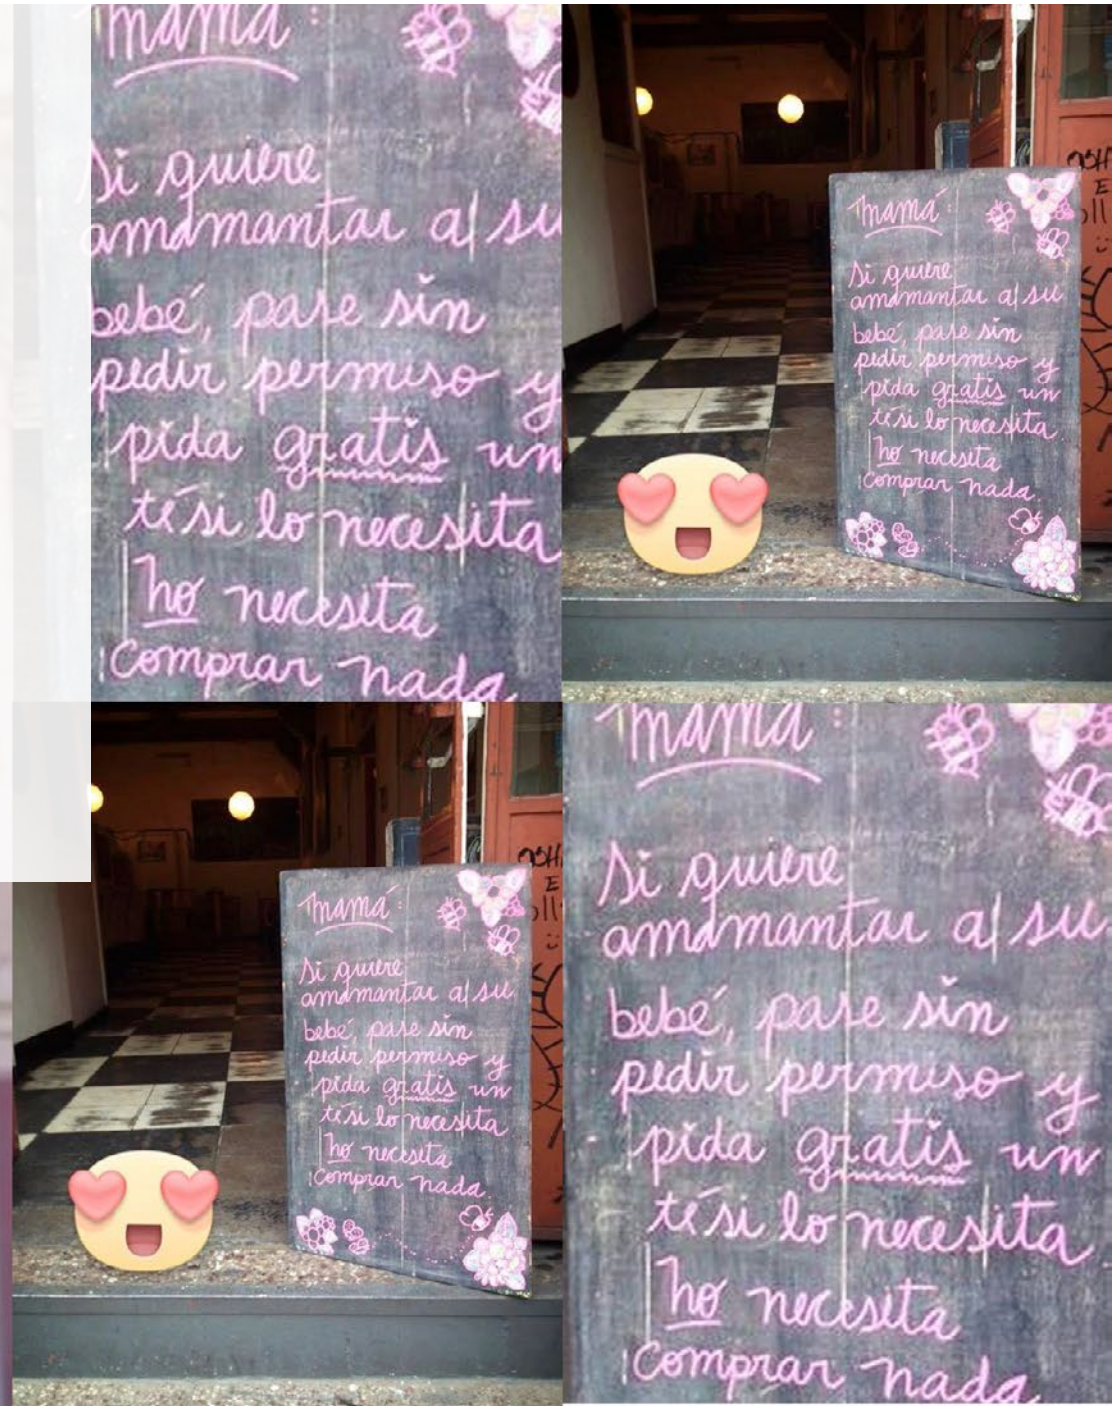 mamá:
Si quiere
amamantar a su
bebé, pase sin
pedir permiso y
pida gratis un
té si lo necesita
no necesita
comprar nada
mamá:
Si quiere
amamantar a su
bebé, pase sin
pedir permiso y
pida gratis un
té si lo necesita.
no necesita
comprar nada.
mamá:
Si quiere
amamantar a su
bebé, pase sin
pedir permiso y
pida gratis un
té si lo necesita
no necesita
comprar nada.
mamá:
Si quiere
amamantar a su
bebé, pase sin
pedir permiso y
pida gratis un
té si lo necesita
no necesita
comprar nada